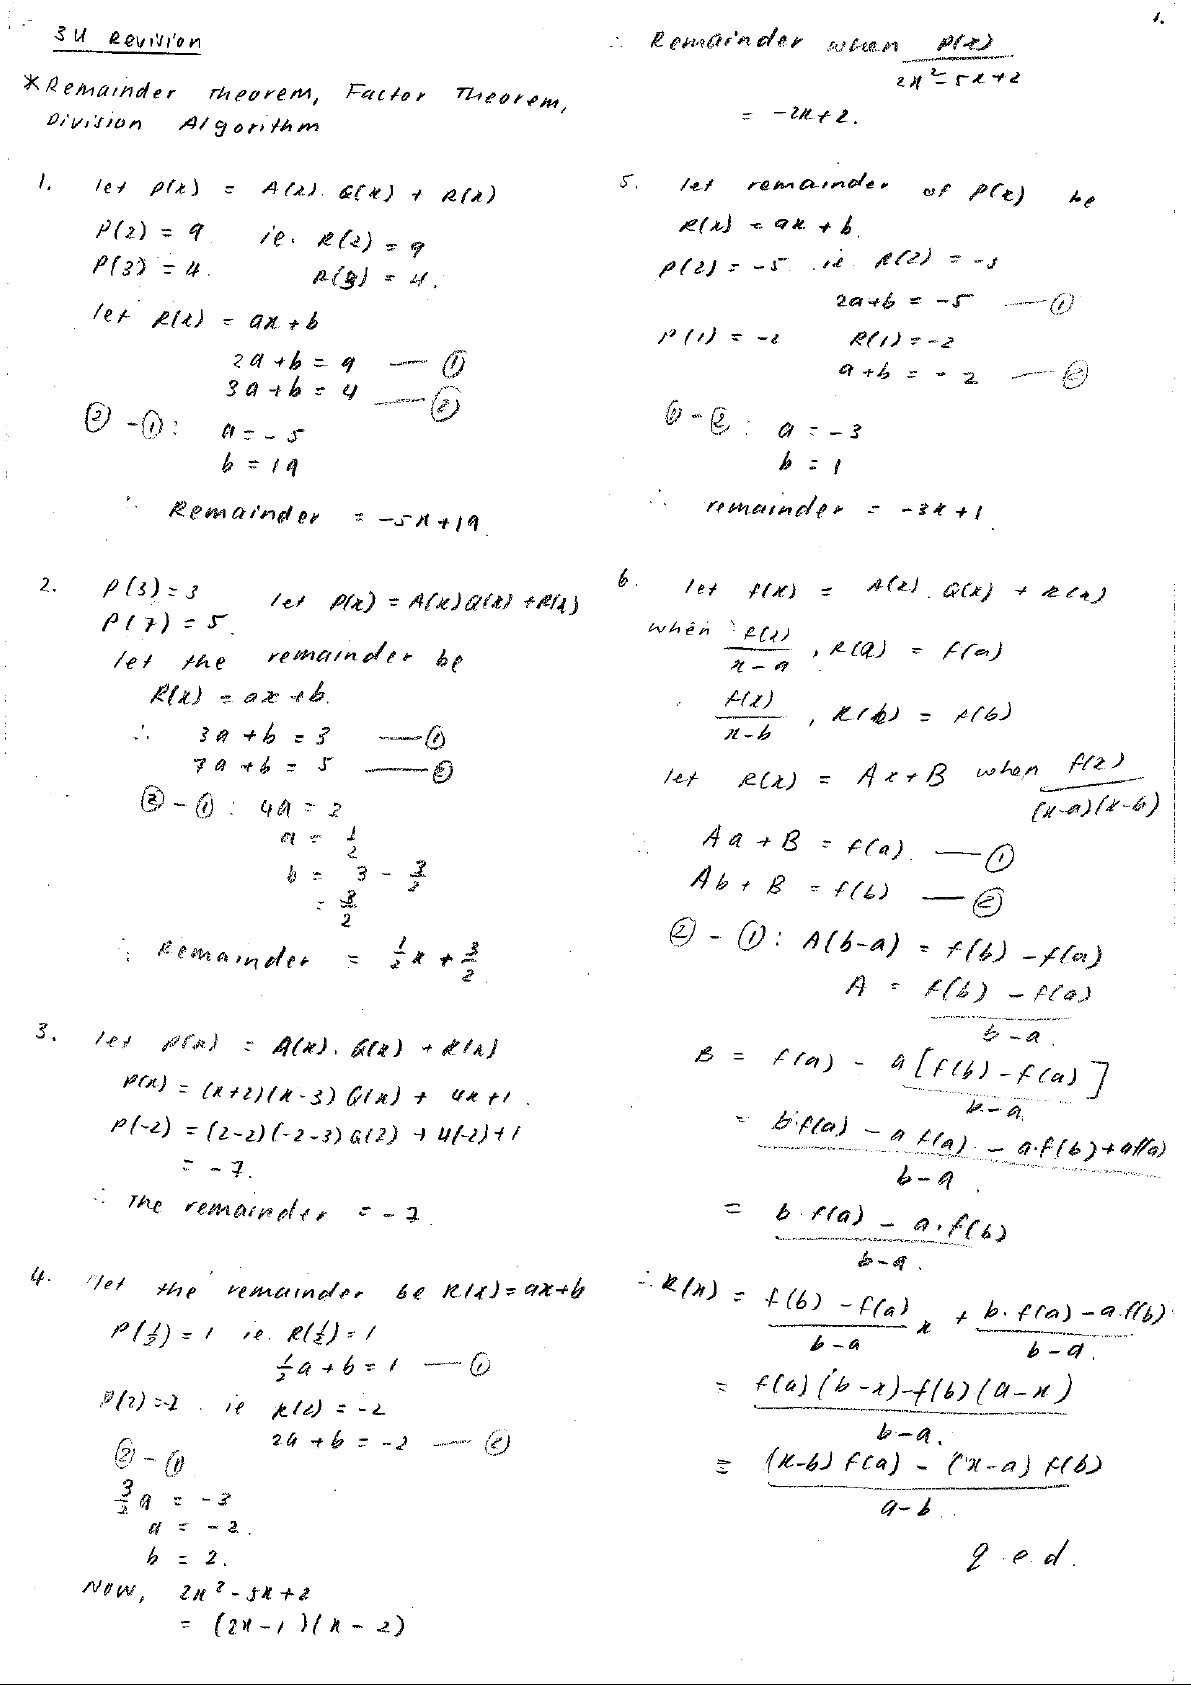 3U Revision
*Remainder Theorem, Factor Theorem,
Division Algorithm
1. let P(x) = A(x). Q(x) + R(x)
P(2) = 9 ie. R(2) = 9
P(3) = 4. R(3) = 4.
let R(x) = ax + b
2a + b = 9 — ①
3a + b = 4 — ②
② - ①: a = -5
b = 19
∴ Remainder = -5x + 19.
2. P(3) = 3 let P(x) = A(x)Q(x) + R(x)
P(7) = 5.
let the remainder be
R(x) = ax + b.
∴ 3a + b = 3 — ①
7a + b = 5 — ②
② - ①: 4a = 2
a = 1/2
b = 3 - 3/2
= 3/2
∴ Remainder = 1/2 x + 3/2
3. let P(x) = A(x). Q(x) + R(x)
P(x) = (x+2)(x-3) Q(x) + 4x+1.
P(-2) = (2-2)(-2-3)Q(2) + 4(-2)+1
= -7.
∴ The remainder = -7.
4. let the remainder be R(x) = ax+b
P(1/2) = 1 ie. R(1/2) = 1
1/2 a + b = 1 — ①
P(2) = -2 . ie R(2) = -2
2a + b = -2 — ②
② - ①
3/2 a = -3
a = -2.
b = 2.
Now, 2x² - 5x + 2
= (2x - 1)(x - 2)
1.
∴ Remainder when P(x)/(2x² - 5x + 2)
= -2x + 2.
5. let remainder of P(x) be
R(x) = ax + b.
P(2) = -5 . ie R(2) = -5
2a+b = -5 — ①
P(1) = -2 R(1) = -2
a + b = -2 — ②
① - ②: a = -3
b = 1
∴ remainder = -3x + 1.
6. let f(x) = A(x). Q(x) + R(x)
when f(x)/(x - a), R(a) = f(a)
f(x)/(x - b), R(b) = f(b)
let R(x) = Ax + B when f(x)/((x-a)(x-b))
∴ Aa + B = f(a). — ①
Ab + B = f(b) — ②
② - ①: A(b-a) = f(b) - f(a)
A = (f(b) - f(a))/(b - a).
B = f(a) - a[f(b) - f(a)]/(b - a)
= (b·f(a) - a f(a) - a·f(b) + af(a))/(b - a).
= (b·f(a) - a·f(b))/(b - a).
∴ R(x) = (f(b) - f(a))/(b - a) x + (b·f(a) - a.f(b))/(b - a).
= (f(a)(b-x) - f(b)(a-x))/(b - a).
= ((x-b) f(a) - (x-a) f(b))/(a - b).
q.e.d.